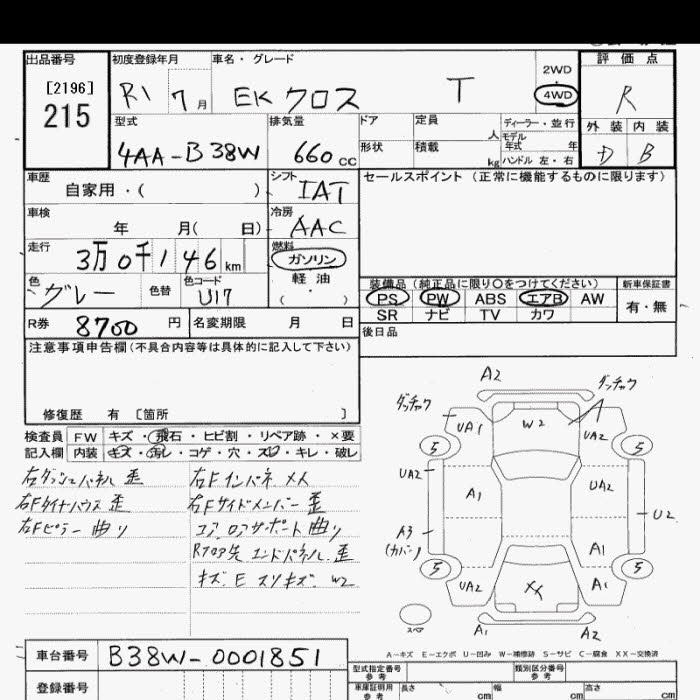 出品番号
[2196]
215
初度登録年月
R1 7月
車名・グレード
EKクロス T
2WD
4WD
評価点
R
外装 内装
D B
型式
4AA-B38W
排気量
660cc
ドア
形状
定員
人
積載
kg
ディーラー・並行
モデル
年式 年
ハンドル 左・右
車歴
自家用・( )
シフト
IAT
車検
年 月( 日)
冷房
AAC
走行
3万0千146km
燃料
ガソリン
軽油
( ・ )
色
グレー
色替
色コード
U17
R券
8700円
名変期限 月 日
セールスポイント (正常に機能するものに限ります)
装備品 (純正品に限り○をつけてください)
PS PW ABS エアB AW
SR ナビ TV カワ
新車保証書
有・無
後日品
注意事項申告欄(不具合内容等は具体的に記入して下さい)
修復歴 有 [箇所 ]
検査員
記入欄
FW キズ・飛石・ヒビ割・リペア跡・×要
内装 キズ・汚レ・コゲ・穴・スレ・キレ・破レ
右ダッシュパネル 歪
右Fタイヤハウス 歪
右Fピラー 曲り
右Fインパネ メ人
右Fサイドメンバー 歪
コア、ロアサポート 曲り
Rフロア先 エンドパネル、歪
キズ、E スリキズ、W2
A2
ダッチャク
ダッチャク
UA1
W2
UA2
5
5
UA2
A1
UA2
U2
A3
(カバー)
A1
5
5
UA2
XX
A1
スペア
A1
A2
A－キズ E－エクボ U－凹み W－補修跡 S－サビ C－腐食 XX－交換済
車台番号
B38W-0001851
登録番号
型式指定番号
参考
類別区分番号
参考
車庫証明用
参考
長さ
cm
幅
cm
高さ
cm